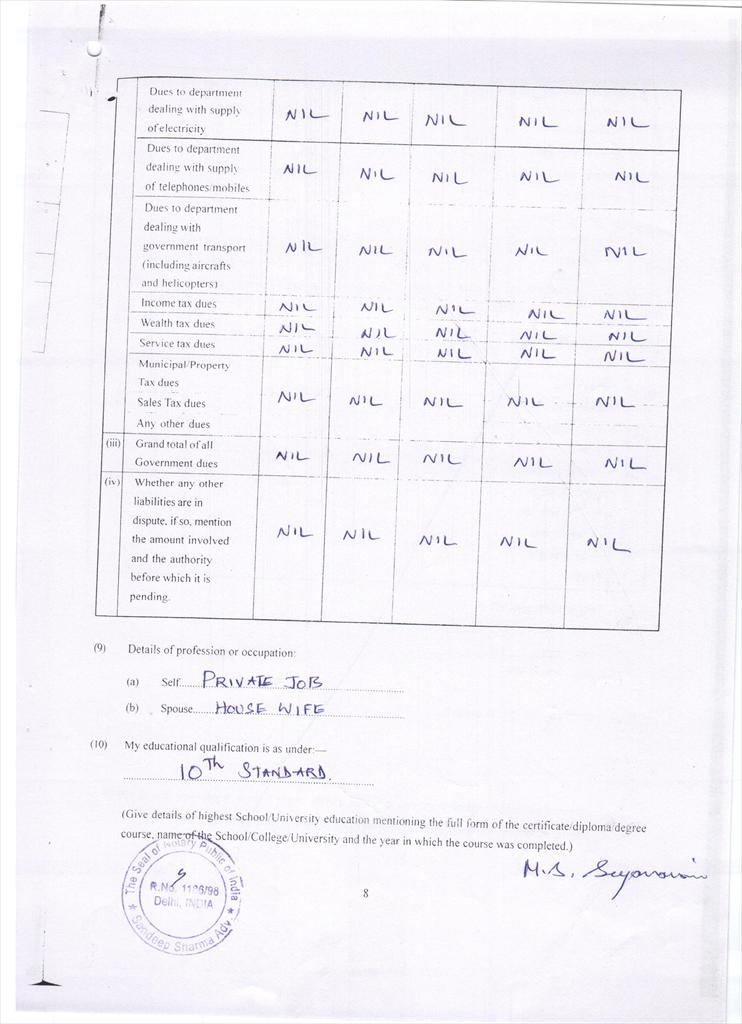 Dues to department
dealing with supply
of electricity
NIL NIL NIL NIL NIL
Dues to department
dealing with supply
of telephones/mobiles
NIL NIL NIL NIL NIL
Dues to department
dealing with
government transport
(including aircrafts
and helicopters)
NIL NIL NIL NIL NIL
Income tax dues NIL NIL NIL NIL NIL
Wealth tax dues NIL NIL NIL NIL NIL
Service tax dues NIL NIL NIL NIL NIL
Municipal/Property
Tax dues
Sales Tax dues
Any other dues
NIL NIL NIL NIL NIL
(iii) Grand total of all
Government dues
NIL NIL NIL NIL NIL
(iv) Whether any other
liabilities are in
dispute, if so, mention
the amount involved
and the authority
before which it is
pending.
NIL NIL NIL NIL NIL
(9) Details of profession or occupation:
(a) Self...... PRIVATE JOB
(b) Spouse...... HOUSE WIFE
(10) My educational qualification is as under:—
10Th STANDARD.
(Give details of highest School/University education mentioning the full form of the certificate/diploma/degree
course, name of the School/College/University and the year in which the course was completed.)
M.S.
The Seal of Notary Public of India
R.No. 1186/98
Delhi, INDIA
Sandeep Sharma Adv.
8